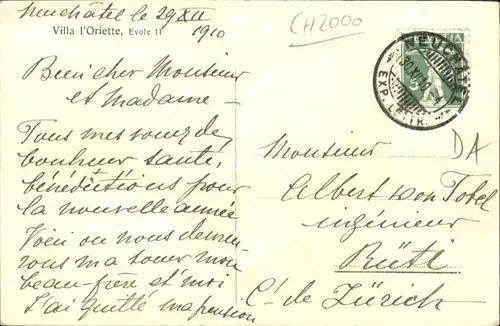 Neuchâtel le 29 XII
1910
Villa l'Oriette, Evole 11
CH2000
Bien cher Monsieur
et Madame -
Tous mes voeux de
bonheur santé,
bénédictions pour
la nouvelle année
Voici où nous demeu-
rons ma soeur mon
beau-frère et moi
J'ai quitté ma pension
HELVETIA
NEUCHATEL
EXP. LETTR.
DA
Monsieur
Albert von Tobel
ingénieur
Rüti
Ct. de Zürich